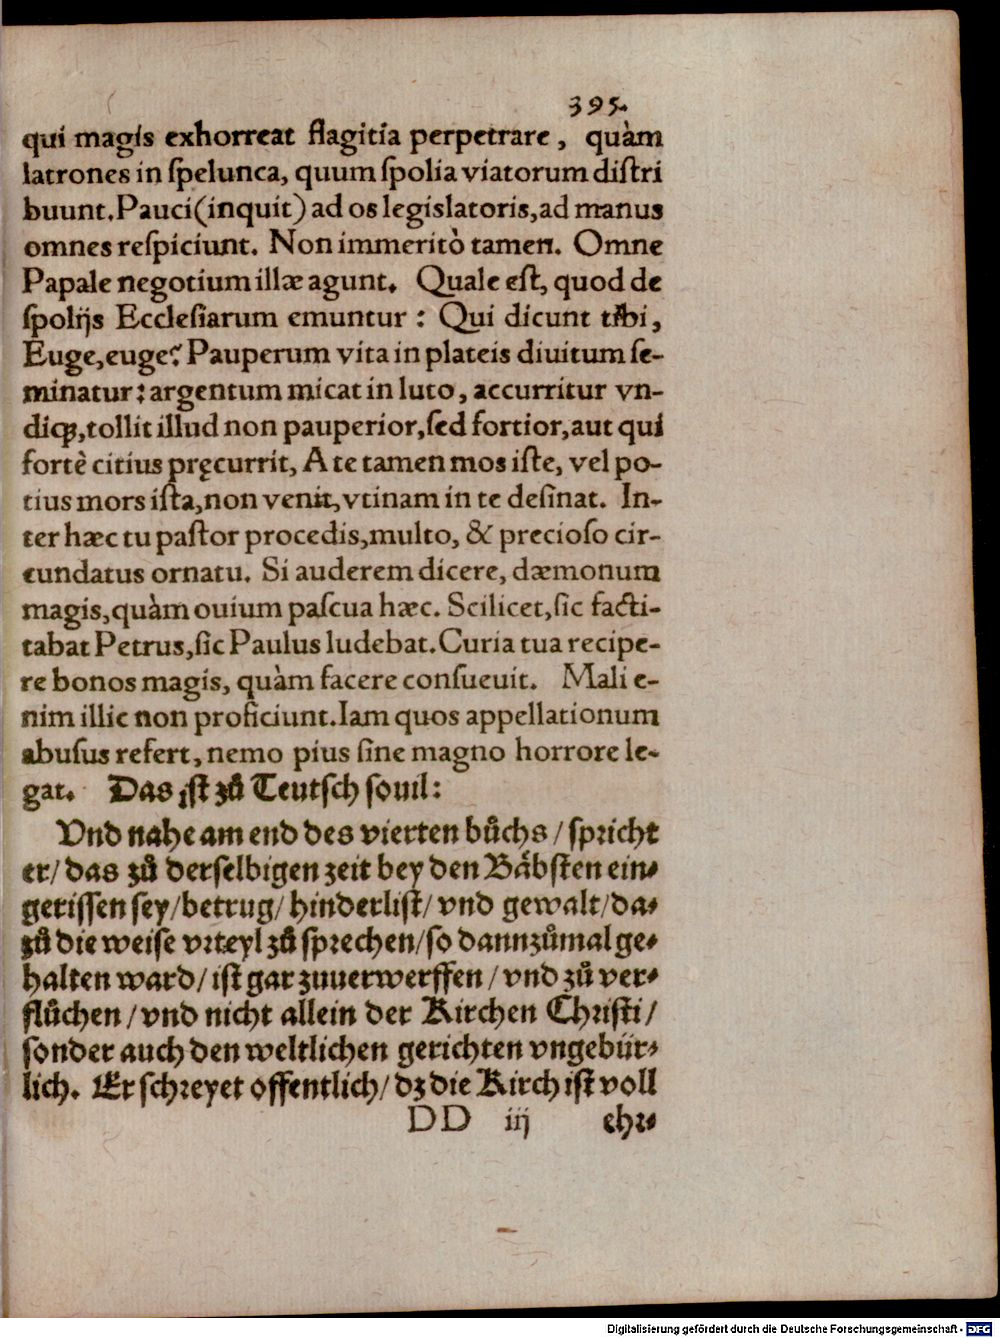 395.
qui magis exhorreat flagitia perpetrare, quàm
latrones in ſpelunca, quum ſpolia viatorum diſtri
buunt. Pauci (inquit) ad os legiſlatoris, ad manus
omnes reſpiciunt. Non immeritò tamen. Omne
Papale negotium illæ agunt. Quale eſt, quod de
ſpolijs Eccleſiarum emuntur: Qui dicunt tibi,
Euge, euge? Pauperum vita in plateis diuitum ſe-
minatur: argentum micat in luto, accurritur vn-
diq́;, tollit illud non pauperior, ſed fortior, aut qui
fortè citius pręcurrit, A te tamen mos iſte, vel po-
tius mors iſta, non venit, vtinam in te deſinat. In-
ter hæc tu paſtor procedis, multo, & precioſo cir-
cundatus ornatu. Si auderem dicere, dæmonum
magis, quàm ouium paſcua hæc. Scilicet, ſic facti-
tabat Petrus, ſic Paulus ludebat. Curia tua recipe-
re bonos magis, quàm facere conſueuit. Mali e-
nim illic non proficiunt. Iam quos appellationum
abuſus refert, nemo pius ſine magno horrore le-
gat. Das iſt zů Teutſch ſouil:
Vnd nahe am end des vierten bůchs / ſpricht
er / das zů derſelbigen zeit bey den Bäbſten ein-
geriſſen ſey / betrug / hinderliſt / vnd gewalt / da-
zů die weiſe vrteyl zů ſprechen / ſo dannzůmal ge-
halten ward / iſt gar zuuerwerffen / vnd zů ver-
flůchen / vnd nicht allein der Kirchen Chriſti /
ſonder auch den weltlichen gerichten vngebür-
lich. Er ſchreyet offentlich / dz die Kirch iſt voll
DD iij ehr-
Digitalisierung gefördert durch die Deutsche Forschungsgemeinschaft - DFG